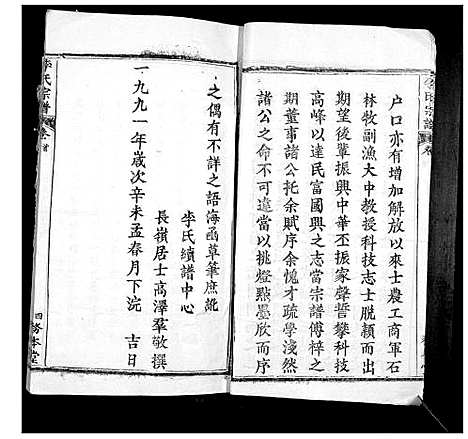 户口亦有增加解放以來士農工商軍石
林牧副漁大中教授科技志士脱穎而出
期望後輩振興中華丕振家聲誓攀科技
高峰以達民富國興之志當宗譜傅梓之
期董事諸公托余賦序余愧才疏學淺然
諸公之命不可違當以挑燈點墨敘而序
之偶有不詳之語海函草筆庶訛
李氏續譜中心
長嶺居士高澤羣敬撰
一九九一年歲次辛未孟春月下浣 吉日
李氏宗譜
卷首
四